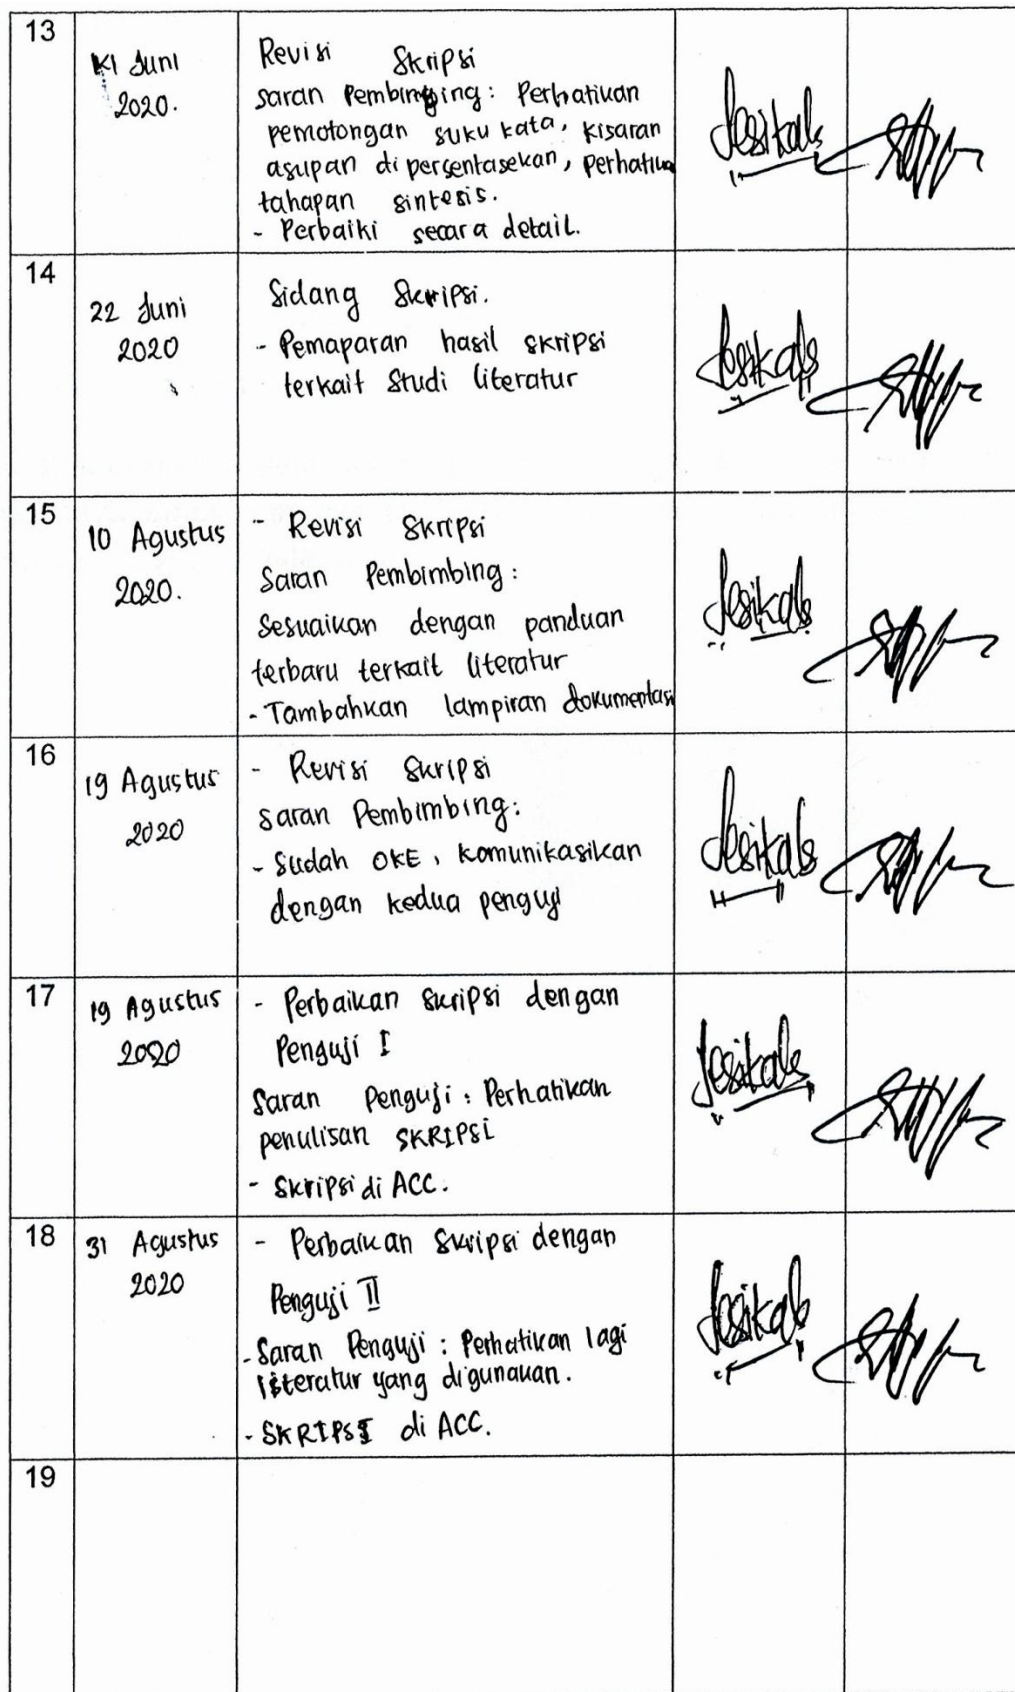 13
Juni
2020.
Revisi Skripsi
saran Pembimbing: Perhatikan
pemotongan suku kata, kisaran
asupan di persentasekan, perhatikan
tahapan sintesis.
- Perbaiki secara detail.
Jesikals
14
22 Juni
2020
Sidang Skripsi.
- Pemaparan hasil skripsi
terkait Studi literatur
Jesikals
15
10 Agustus
2020.
- Revisi Skripsi
Saran Pembimbing:
Sesuaikan dengan panduan
terbaru terkait literatur
- Tambahkan lampiran dokumentasi
Jesikals
16
19 Agustus
2020
- Revisi Skripsi
saran Pembimbing:
- Sudah OKE, komunikasikan
dengan kedua penguji
Jesikals
17
19 Agustus
2020
- Perbaikan skripsi dengan
Penguji I
Saran Penguji: Perhatikan
penulisan SKRIPSI
- Skripsi di ACC.
Jesikals
18
31 Agustus
2020
- Perbaikan skripsi dengan
Penguji II
- Saran Penguji: Perhatikan lagi
literatur yang digunakan.
- SKRIPSI di ACC.
Jesikals
19